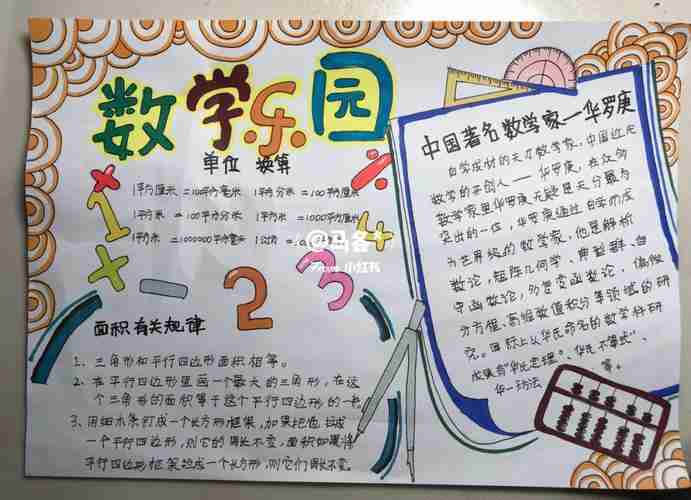 数学乐园
单位 换算
1平方厘米 =100平方毫米 1平方分米 =100平方厘米
1平方米 =100平方分米 1平方米 =1000平方厘米
1平方米 =1000000平方毫米 1公顷
面积有关规律
1、三角形和平行四边形面积相等。
2、在平行四边形里画一个最大的三角形，在这
个三角形的面积等于这个平行四边形的一半
3、用细木条钉成一个长方形框架，如果把它拉成
一个平行四边形，则它的周长不变，面积如果将
平行四边形框架拉成一个长方形，则它们周长不变。
中国著名数学家—华罗庚
自学成材的天才数学家，中国近代
数学的开创人——华罗庚，在众多
数学家里华罗庚无疑是天分最为
突出的一位，华罗庚通过自学而成
为世界级的数学家，他是解析
数论，矩阵几何学、典型群、自
守函数论，多复变函数论、偏微
分方程、高维数值积分等领域的研
究。国际上以华氏命名的数学科研
成果有“华氏定理”、华氏不等式”、
华—方法 等。
1
2
3
4
小红书